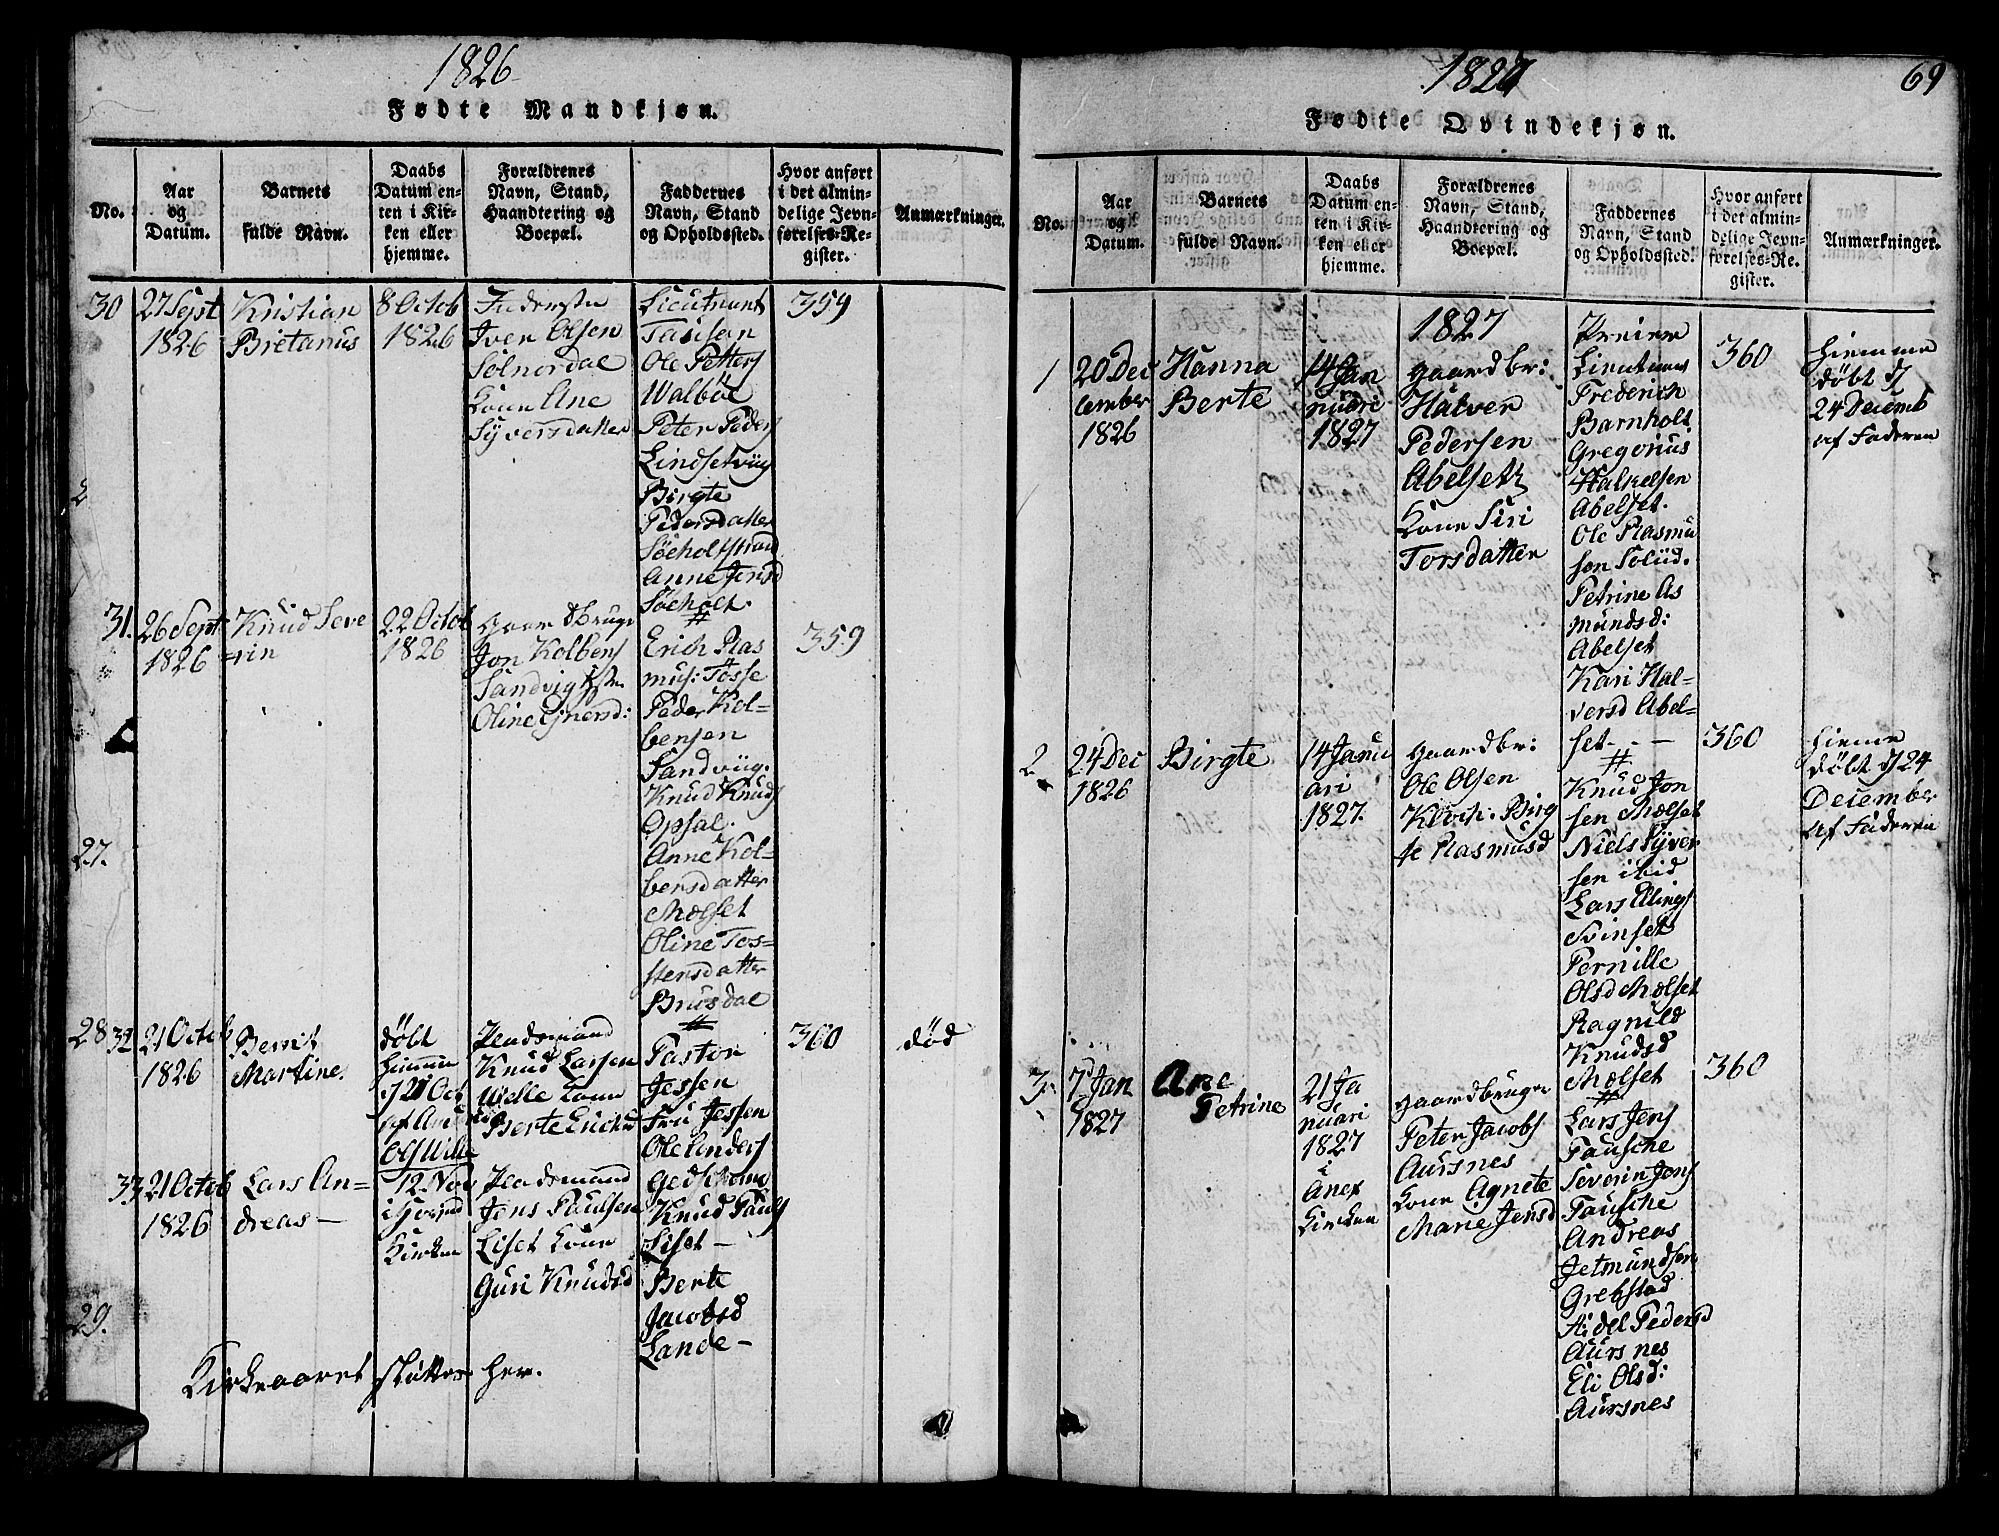 1826
Fødte Mandkjøn.
No.
Aar
og
Datum.
Barnets
fulde Navn.
Daabs
Datum en-
ten i Kir-
ken eller
hjemme.
Forældrenes
Navn, Stand,
Haandtering og
Boepæl.
Faddernes
Navn, Stand
og Opholdssted.
Hvor anført
i det almin-
delige Jevn-
førelses-Re-
gister.
Anmærkninger.
30
27 Sept
1826
Kristian
Bretanus
8 Octob
1826
Iver Olsen
Solnordal
Kone Ane
Syversdatter
Lieutnant
Tausan
Ole Petters
Walbøe
Peter Peders
Lindsetvüg
Birgte
Pedersdatter
Søeholtstrand
Anne Jensd
Søeholt.
359
31.
26 Sept
1826
Knud Seve
rin
22 Octob
1826
Gaardbruge
Jon Kolbens
Sandvig Kone
Oline Gnersd:
Erich Ras
mus: Tosse
Peder Kol-
bensen
Sandvüg.
Knud Knuds
Opsal.
Anne Kol-
bensdatter
Molset
Oline Tos-
stensdatter
Brusdal
359
27.
28
32
21 Octob
1826
Berrit
Martine.
døbt
hiemme
21 Oct
Knud Larsen
Welle Kone
Berte Erichsd
Pastor
Jessen
Fru Jessen
Ole Anders
360
død
33
21 Octob
1826
Lars An-
dreas —
12 Nov
Kirken
Jens Paulsen
Liset Kone
Guri Knudsd
Knud Pauls
Liset —
Berte
Jacobsd
Lande —
29.
Kirkeaaret slutter her.
1827
69
Fødte Qvindekjøn.
No.
Aar
og
Datum.
Barnets
fulde Navn.
Daabs
Datum en-
ten i Kir-
ken eller
hjemme.
Forældrenes
Navn, Stand,
Haandtering og
Boepæl.
Faddernes
Navn, Stand
og Opholdssted.
Hvor anført
i det almin-
delige Jevn-
førelses-Re-
gister.
Anmærkninger.
1827
1
20 Dec
ember
1826
Hanna
Berte
14 Jan
nuari
1827
Gaardbr:
Halver
Pedersen
Abelseth
Kone Siri
Torsdatter
Preiere
Lieutnant
Frederich
Barnholt
Gregorius
Halkelsen
Abelset.
Ole Rasmu
sen Solüd.
Petrine As
mundsd:
Abelset
Kari Hal-
versd Abel-
set. —
360
hiemme
døbt d
24 Decemb
af Faderen
2
24 Dec
1826
Birgte
14 Janu
ari
1827.
Gaardbr:
Ole Olsen
Klock: Birg
te Rasmusd
Knud Jon
sen Molset
Niels Syver
sen ibid
Lars Ellings
Svinset
Pernille
Olsd Molset
Ragnild
Knudsd
Molset
360
hieme
døbt d 24
December
af Faderen
3
7 Jan
1827
Ane
Petrine
21 Ja
nuari
1827
i
Anex
Kirken
Gaardbruger
Peter Jacobs
Aursnes
Kone Agnete
Marie Jensd
Lars Jens
Tausche
Severin Jens
Tausche
Andreas
Jetmundsen
Grebstad
Aidel Pedersd
Aursnes
Eli Olsd:
Aursnes
360